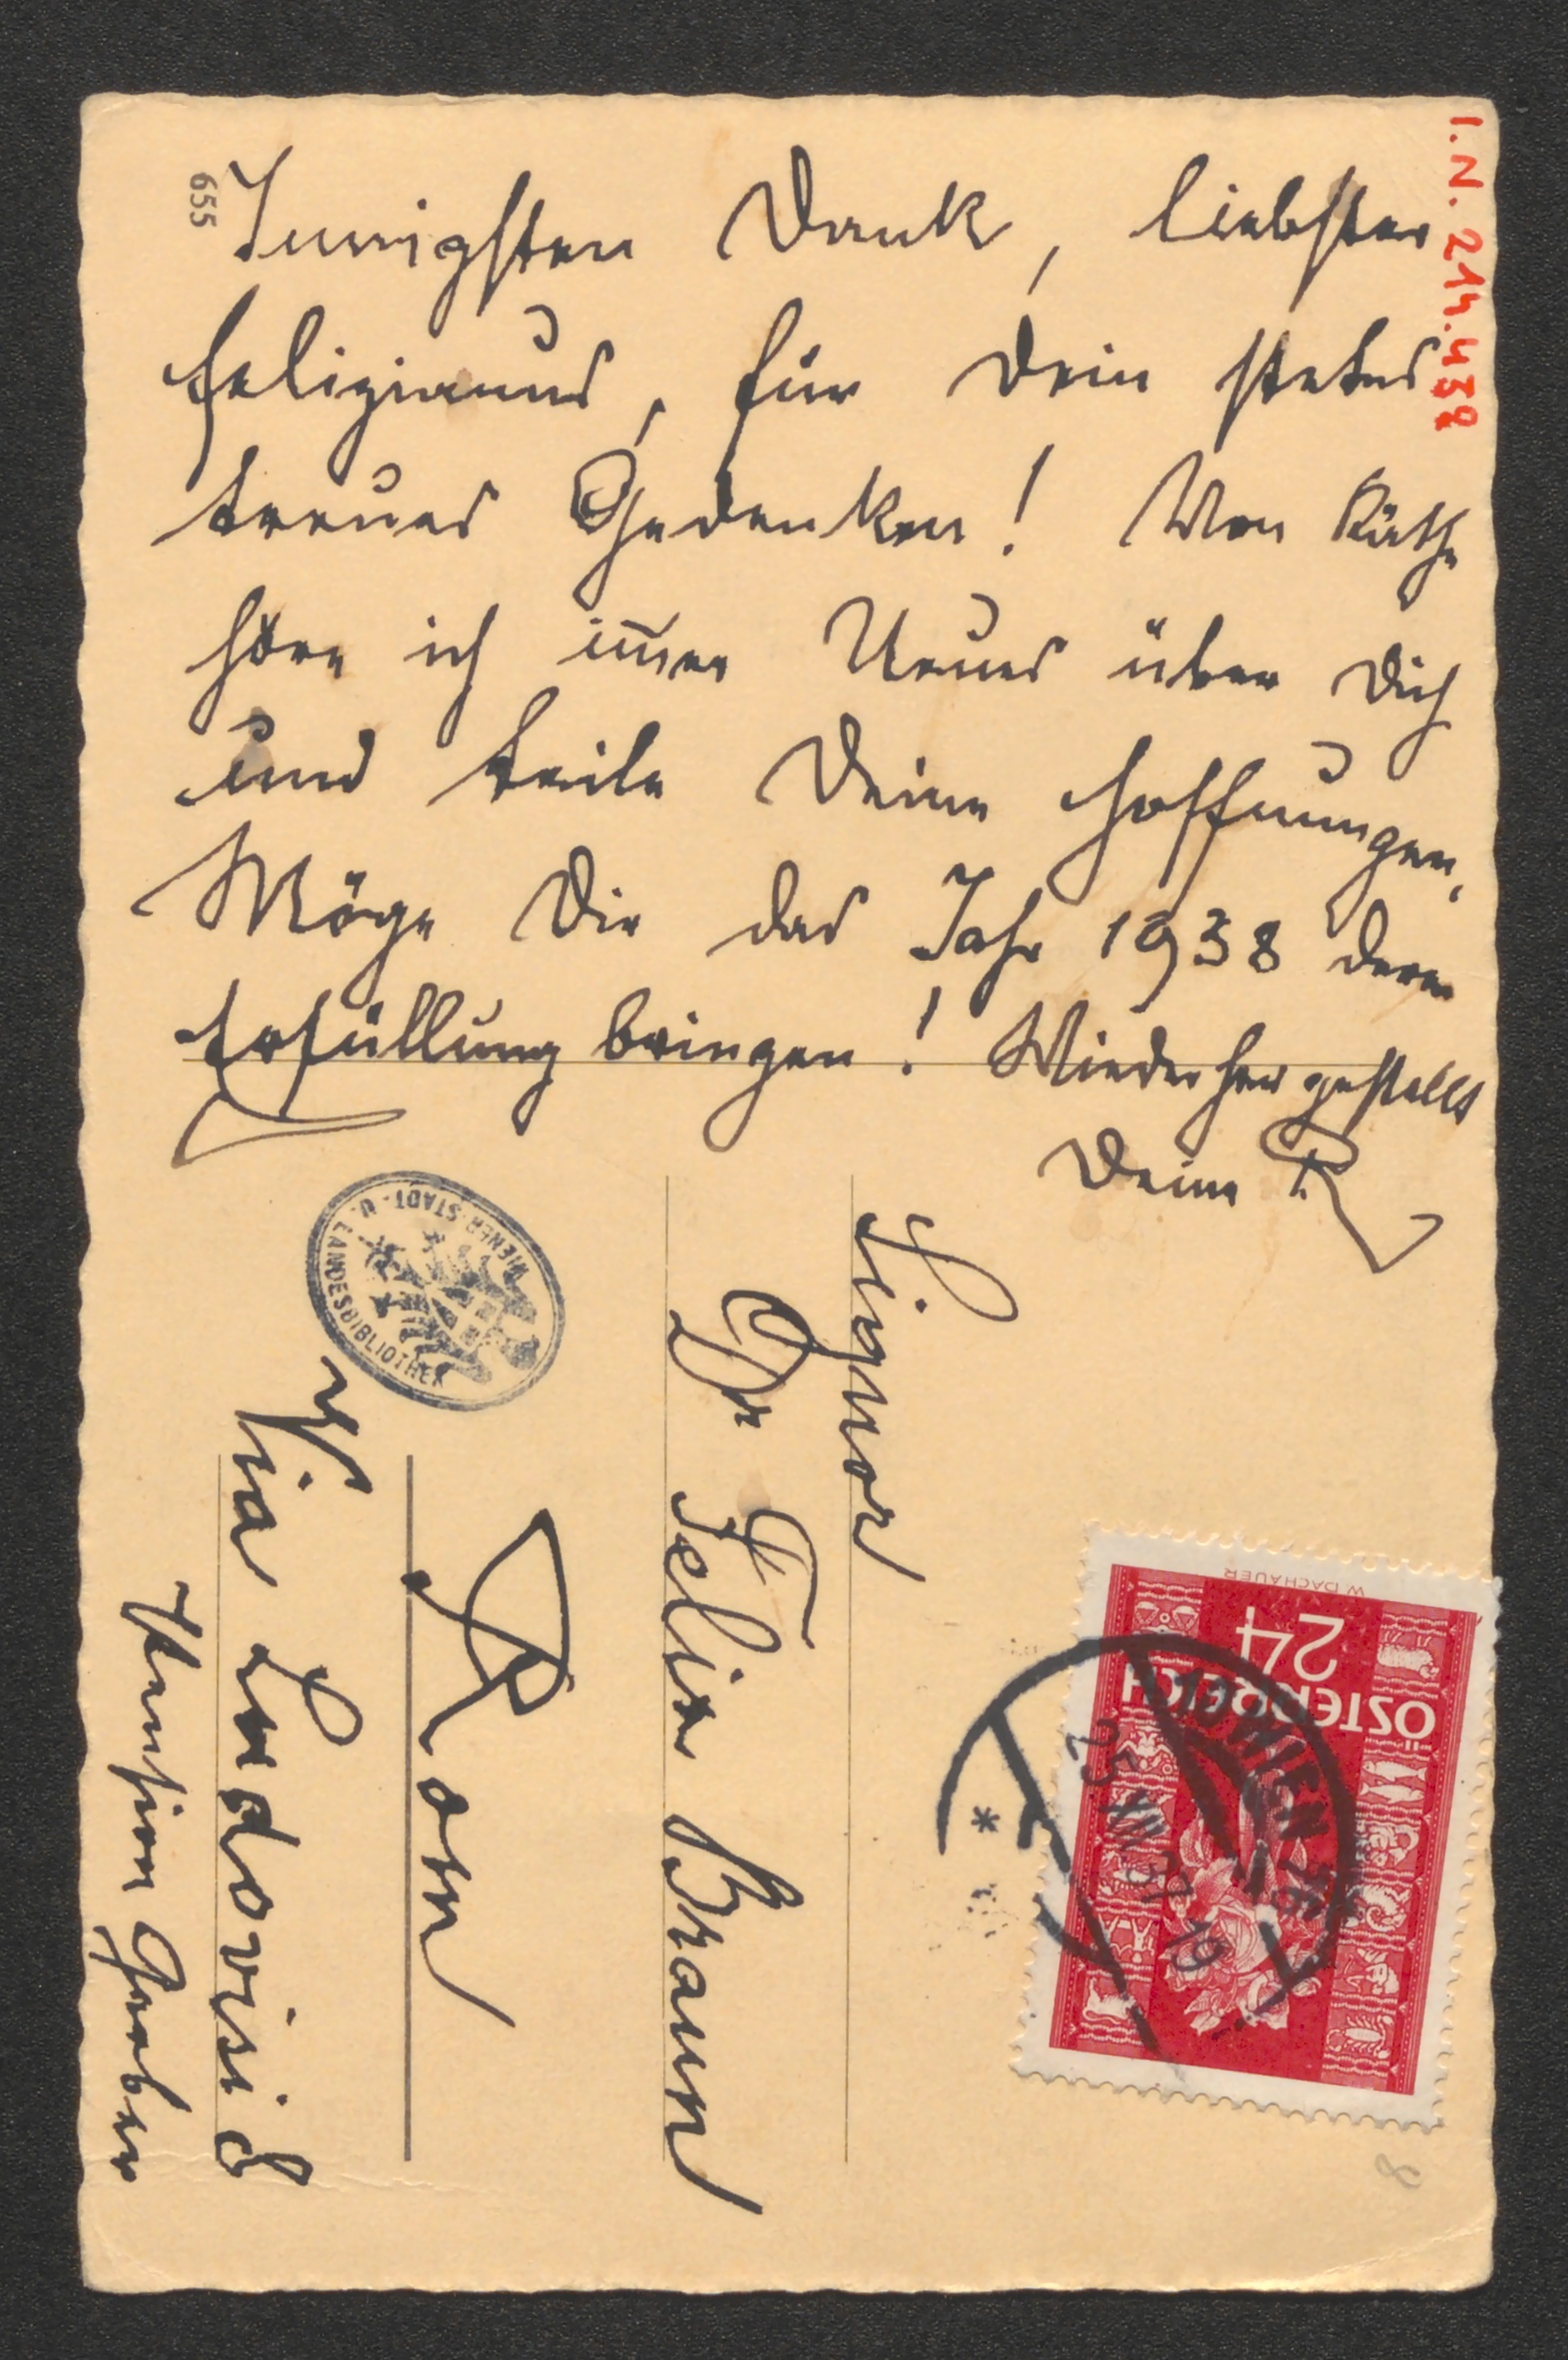 655
I.N. 214.432
Innigsten Dank, liebster
Felizianus, für Dein stetes
treues Gedenken! Von Käthe
höre ich im̅er Neues über Dich
und teile Deine Hoffnungen,
Möge Dir das Jahr 1938 deren
Erfüllung bringen! Wiederhergestellt
Deine R
Signor
Dr Felix Braun
Rom
Via Ludovisi 8
Pension
WIENER STADT- U. LANDESBIBLIOTHEK
W. DACHAUER
24
ÖSTERREICH
WIEN 76
25 XII 37 19
*
8